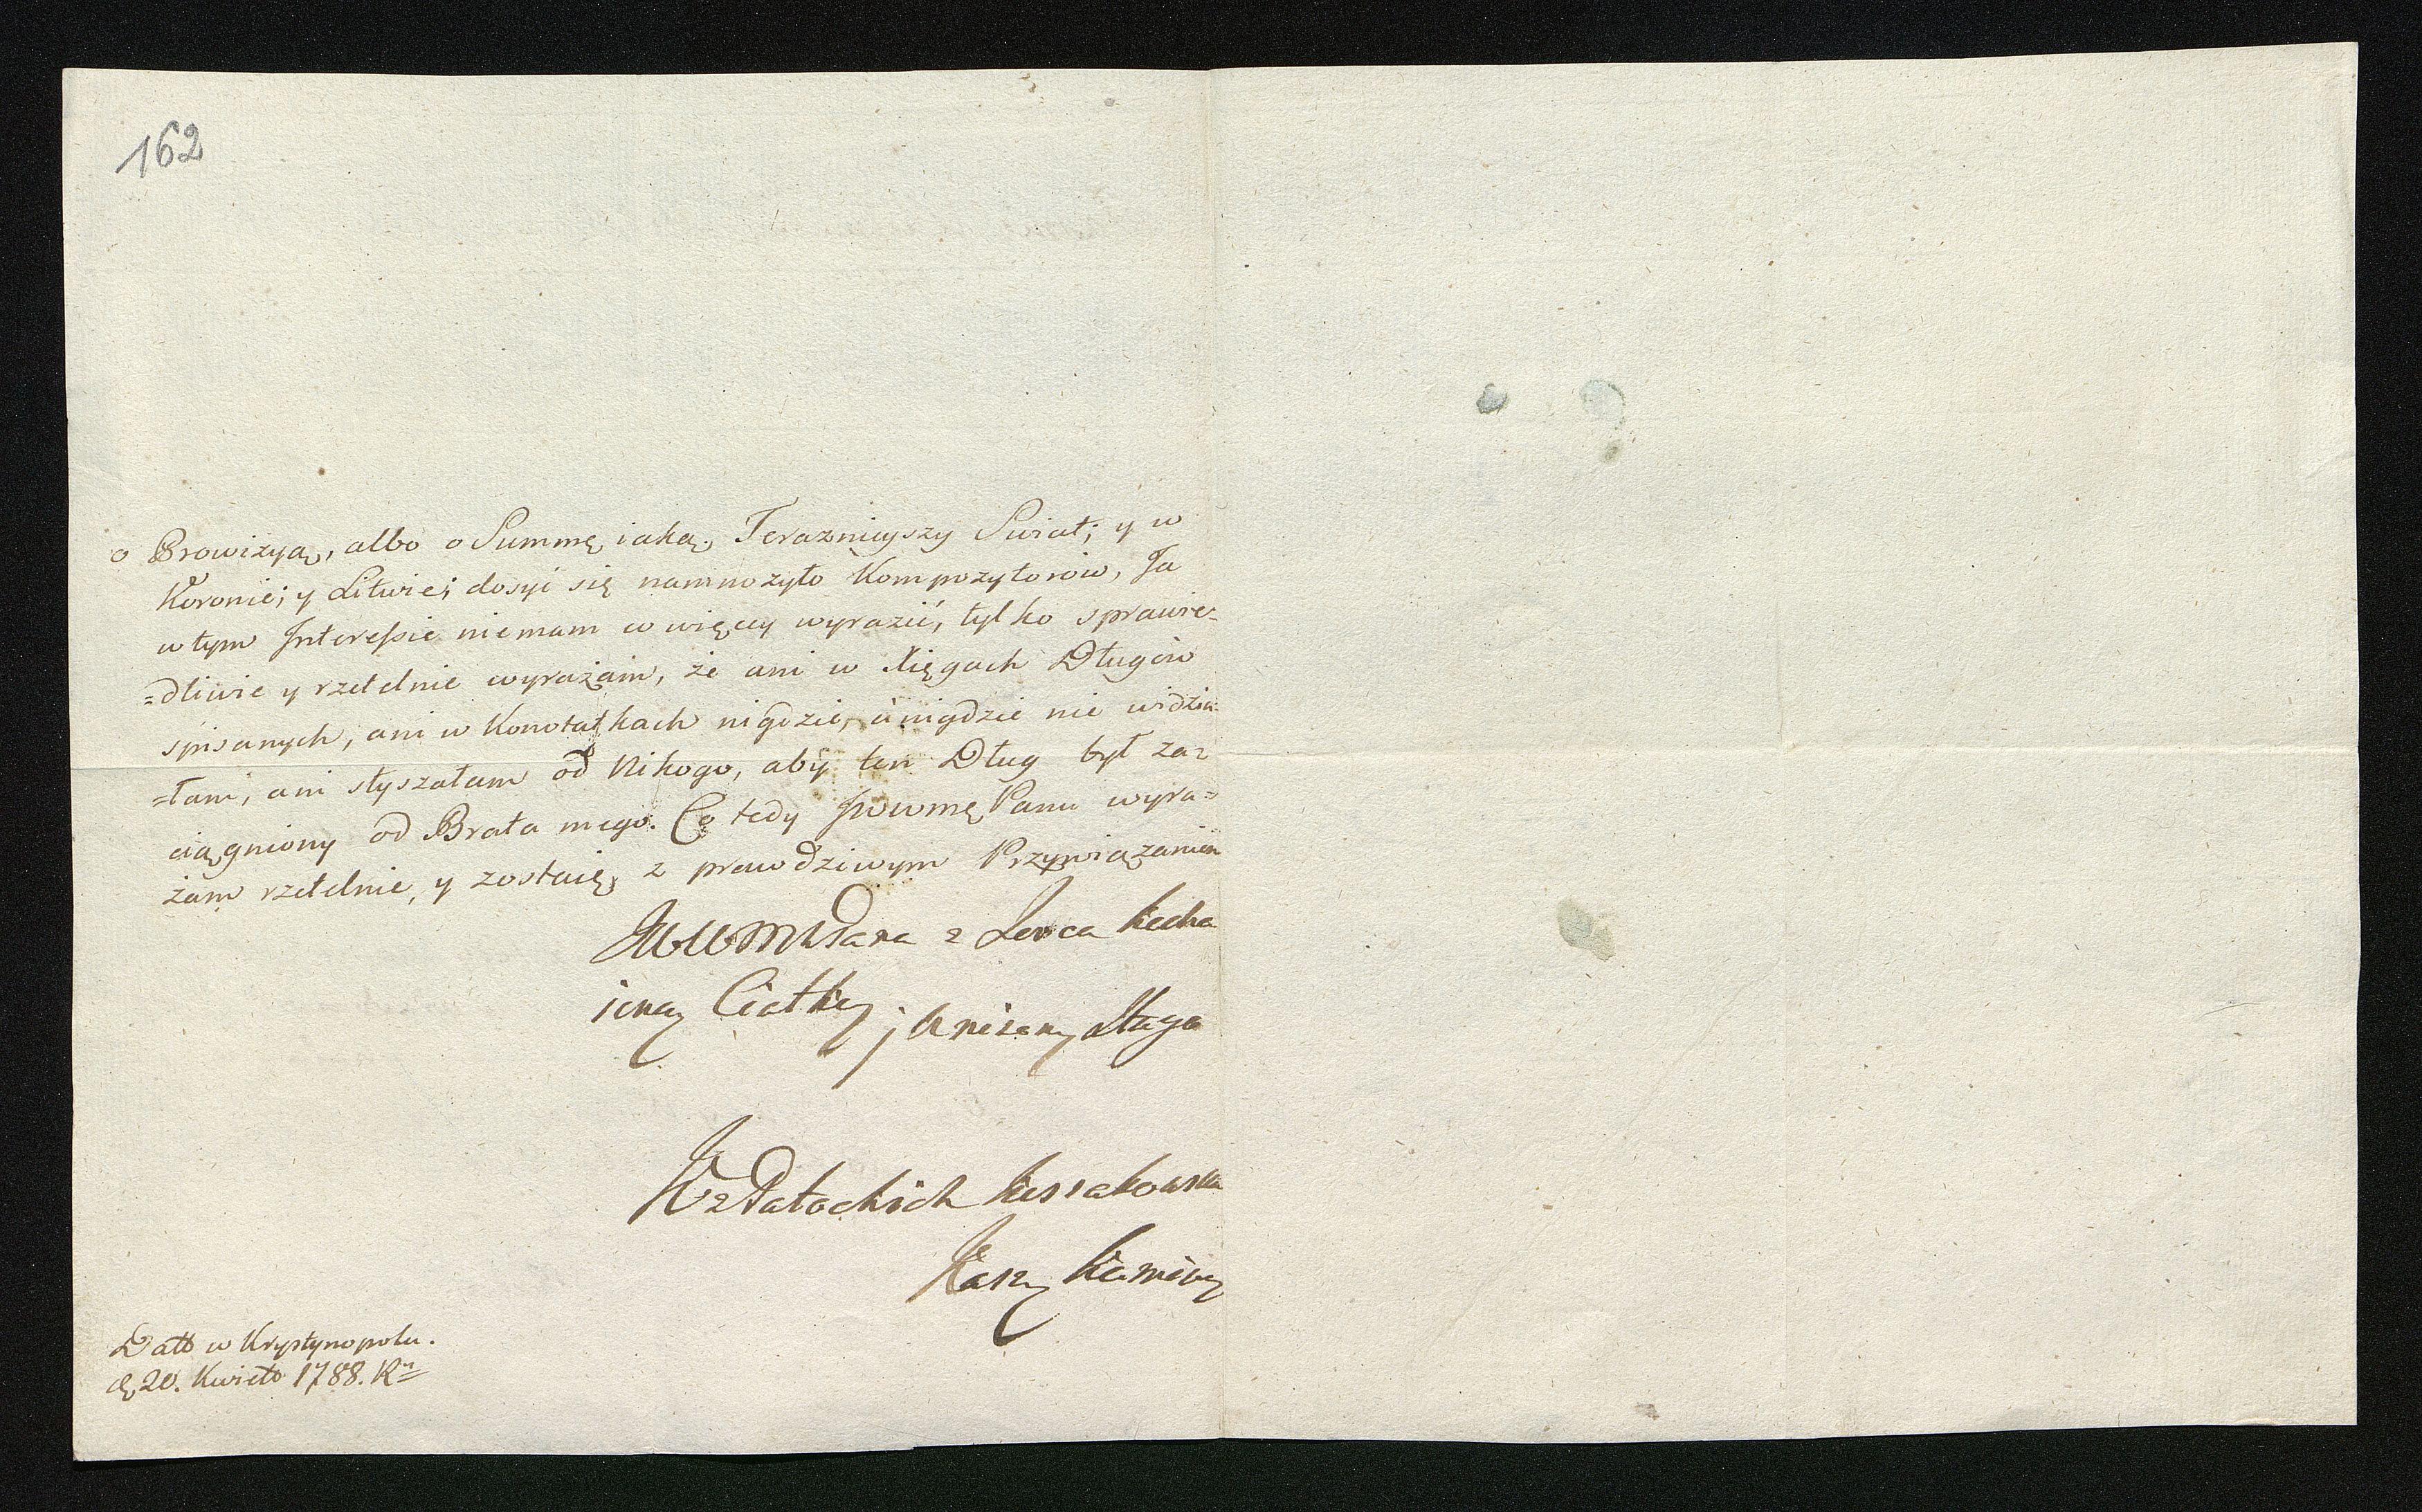 162
o Prowizyą, albo o Summę iaką. Teraznieyszy Swiat; y w
Koronie; y Litwie; dosyć się namnożyło Kompozytorow, Ja
w tym Interessie niemam co więcey wyrazić, tylko sprawie=
=dliwie y rzetelnie wyrażam, że ani w Xięgach Długów
spisanych, ani w Konotatkach nigdzie, a nigdzie nie widzia=
=łam, ani słyszałam od Nikogo, aby ten Dług był za=
ciągniony od Brata mego. Co tedy JWWmę Panu wyra=
żam rzetelnie, y zostaię, z prawdziwym Przywiązaniem
JWWM Pana z Serca kocha
iącą Ciotką j Unizoną Sługą
K z Potockich Kossakowska
Kasz Kamińą
Datt w Krystynopolu.
d 20. Kwiet 1788. Ru